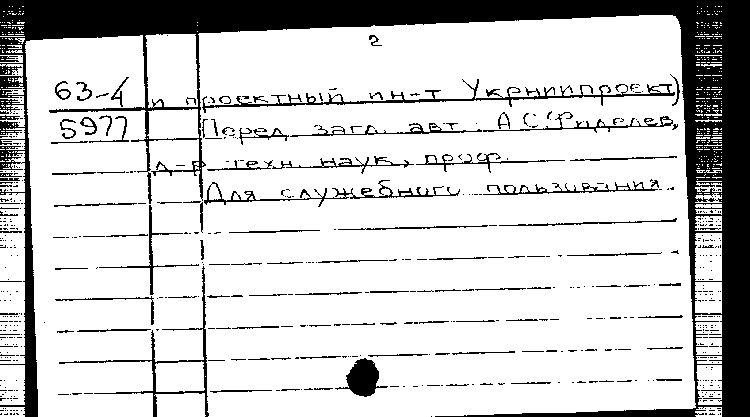 2
63-4 и проектный ин-т Укрниипроект)
5977 Перед загл. авт.: А.С. Фиделев,
д-р техн. наук, проф.
Для служебного пользования.